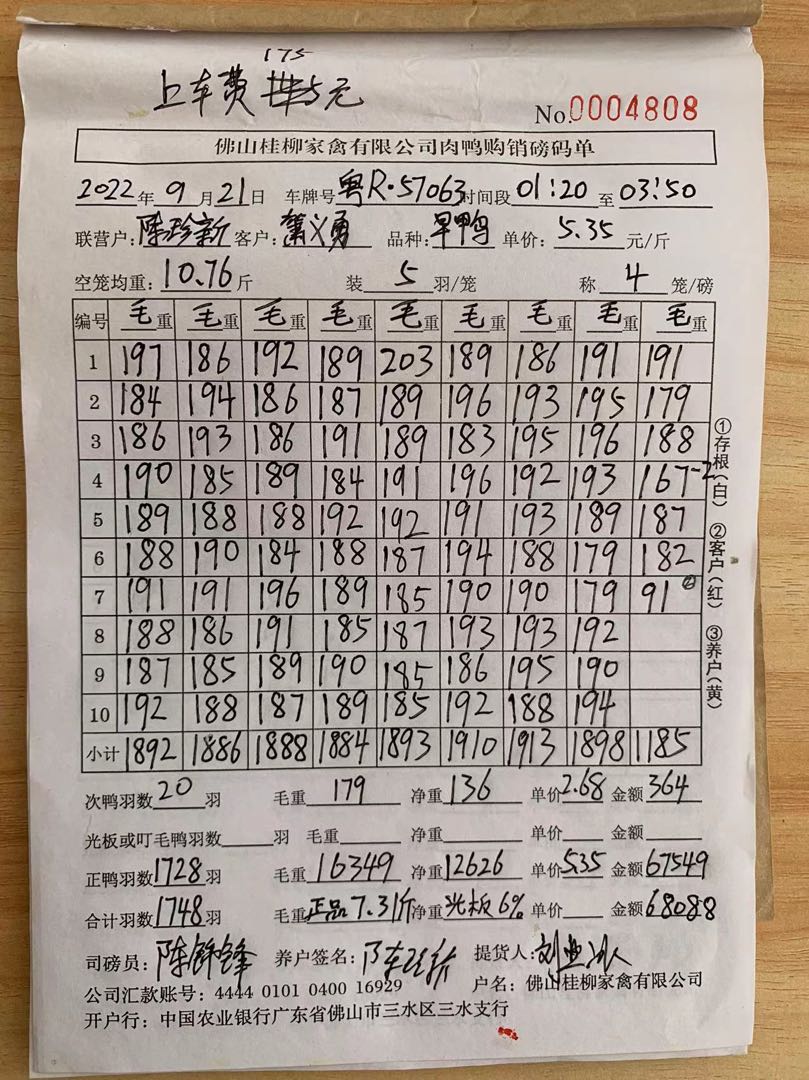 175
上车费 元
No.0004808
佛山桂柳家禽有限公司肉鸭购销磅码单
2022年9月21日 车牌号粤R·57063时间段01:20至03:50
联营户:陈珍新 客户:义勇 品种:早鸭 单价:5.35元/斤
空笼均重:10.76斤 装5羽/笼 称4笼/磅
编号 毛重 毛重 毛重 毛重 毛重 毛重 毛重 毛重 毛重
1 197 186 192 189 203 189 186 191 191
2 184 194 186 187 189 196 193 195 179
3 186 193 186 191 189 183 195 196 188
4 190 185 189 184 191 196 192 193 167-2
5 189 188 188 192 192 191 193 189 187
6 188 190 184 188 187 194 188 179 182
7 191 191 196 189 185 190 190 179 91②
8 188 186 191 185 187 193 193 192
9 187 185 189 190 185 186 195 190
10 192 188 187 189 185 192 188 194
小计 1892 1886 1888 1884 1893 1910 1913 1898 1185
①存根(白) ②客户(红) ③养户(黄)
次鸭羽数20羽 毛重179 净重136 单价2.68 金额364
光板或叮毛鸭羽数 羽 毛重 净重 单价 金额
正鸭羽数1728羽 毛重16349 净重12626 单价5.35 金额67549
合计羽数1748羽 毛重正品7.31斤净重光板6% 单价 金额68088
司磅员:陈锦锋 养户签名: 提货人:
公司汇款账号:4444 0101 0400 16929 户名:佛山桂柳家禽有限公司
开户行:中国农业银行广东省佛山市三水区三水支行